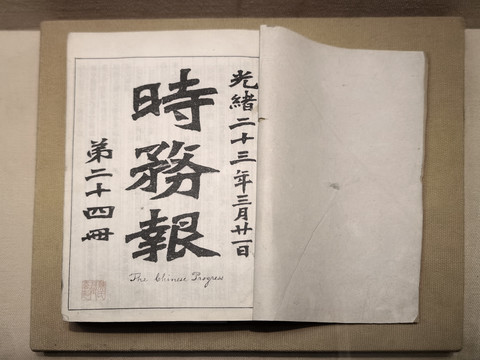 光緒二十三年三月廿一日
時務報
第二十四冊
The Chinese Progress